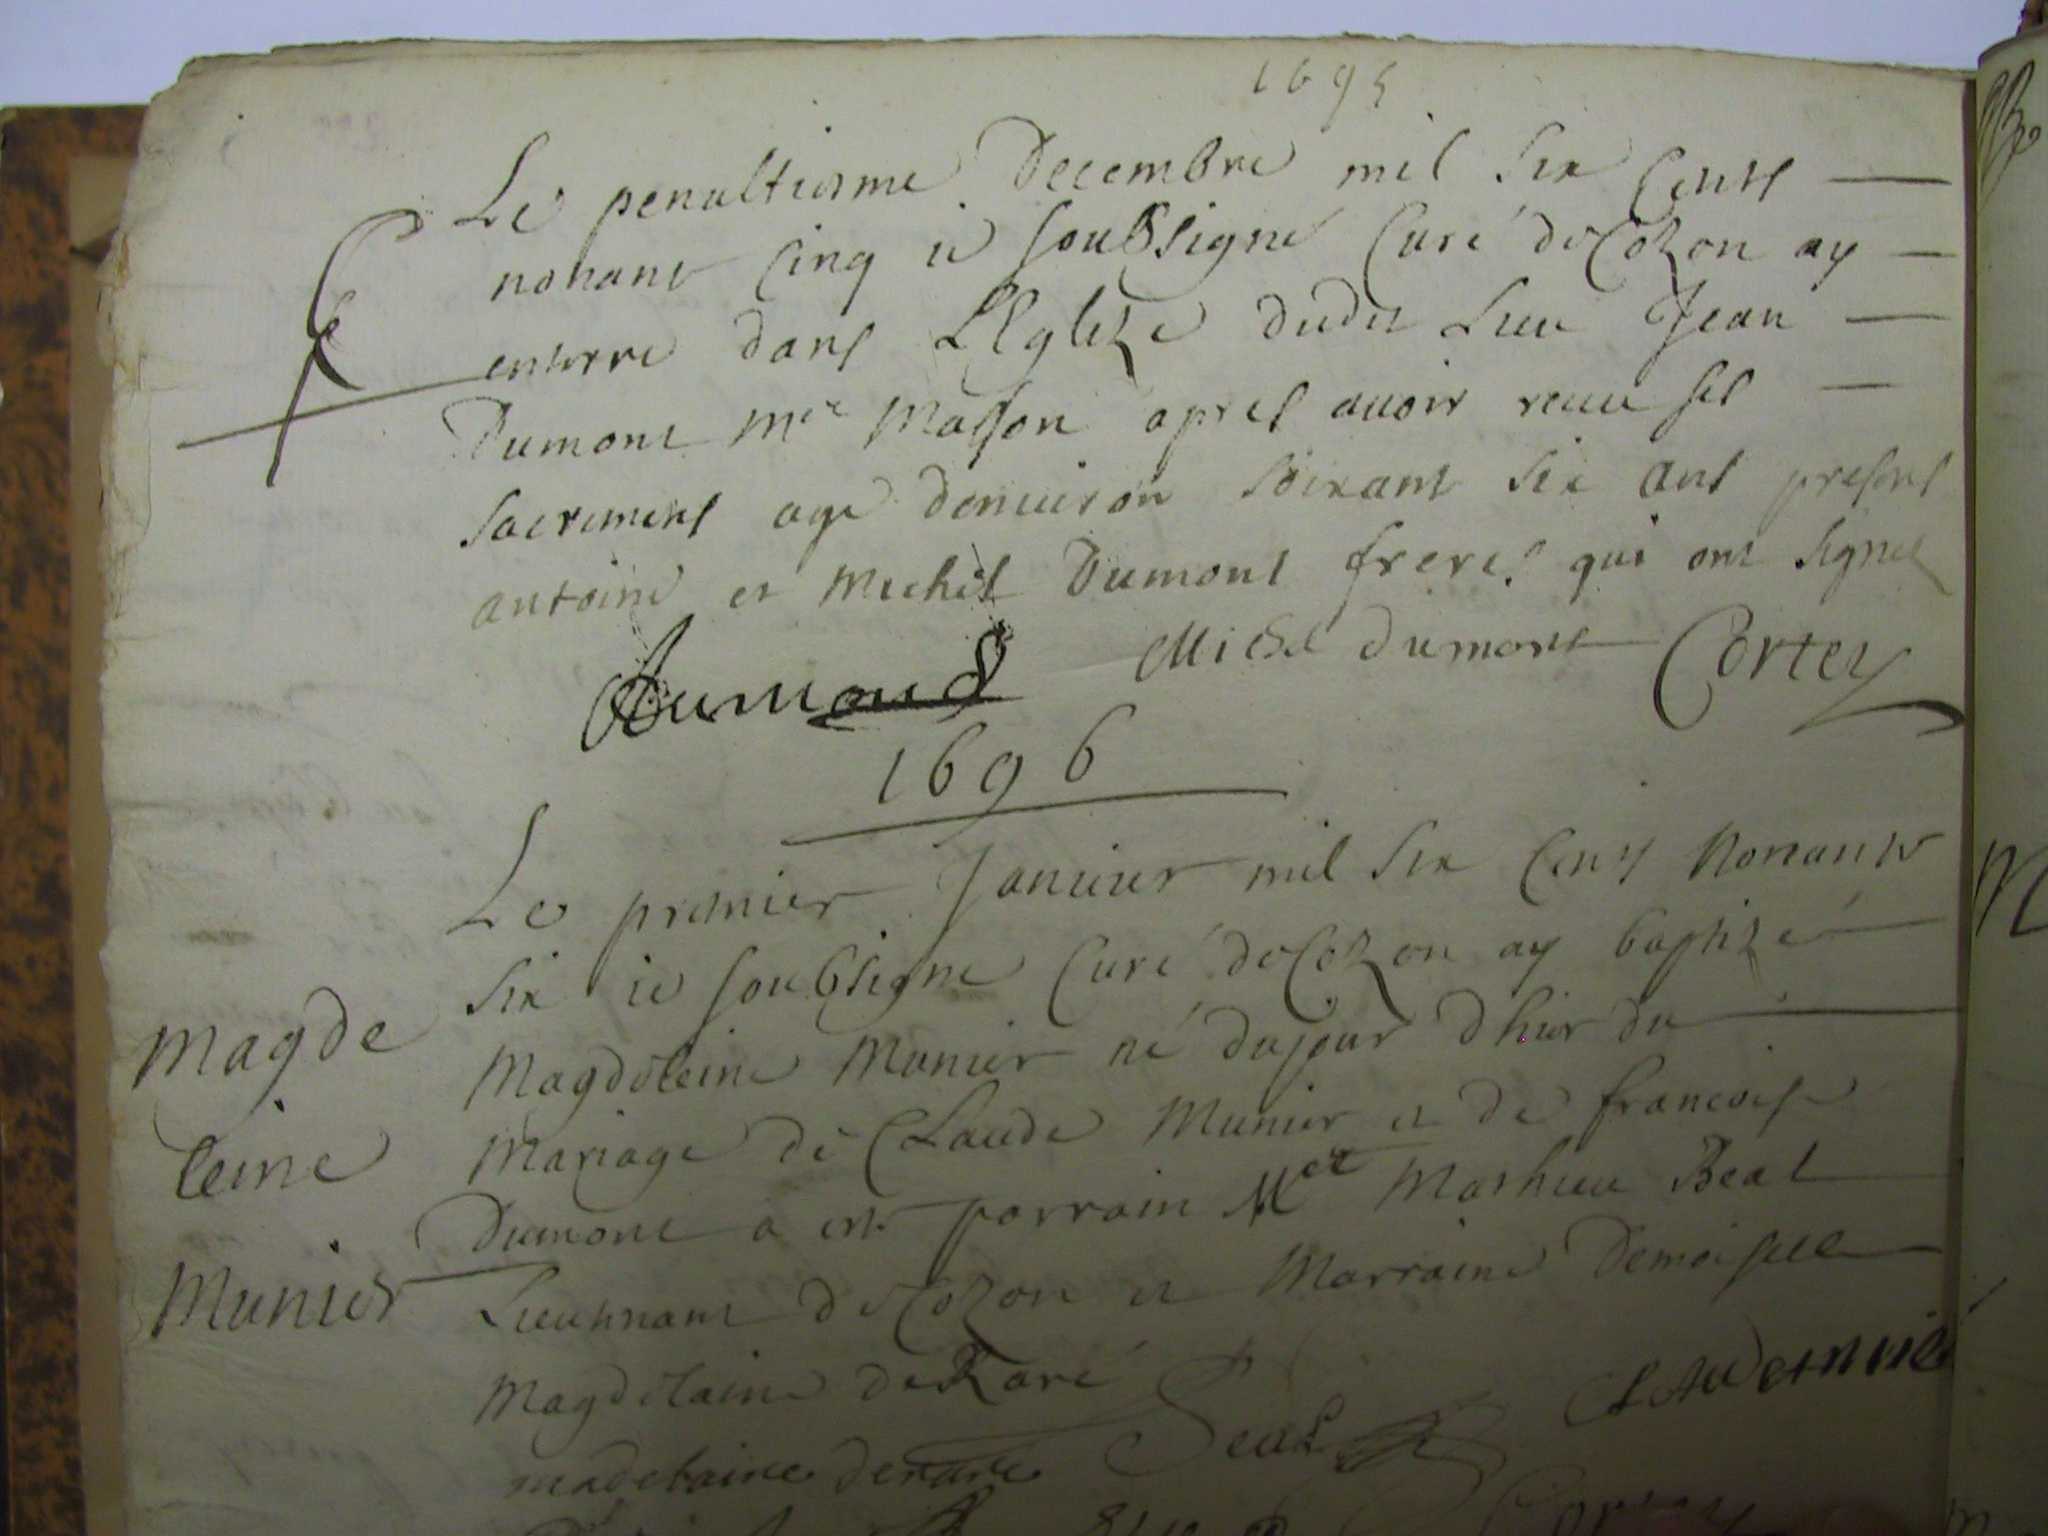 1695
Le penultiesme Decembre mil six cents
nonant cinq ie soubsigné Curé de Cozon ay
enterre dans L'Eglize dudit Lieu Jean
Dumont Mre Masson apres avoir receu ses
sacrements age d'enuiron soixant six ans presents
antoine et Michel Dumont freres qui ont signes
Dumond Michel dumont Cortey
1696
Le premier Januier mil six cents Nonante
six ie soubsigne Curé de Cozon ay baptizé
Magdeleine Munier né du jour d'hier du
Mariage de Claude Munier et de francoise
Dumont a este parrain Mre Mathieu Beal
Lieutenant de Cozon et Marraine Demoiselle
Magdelaine de Raré
madelaine derare Beal Claude munie
Cortey
Magde
leine
Munier